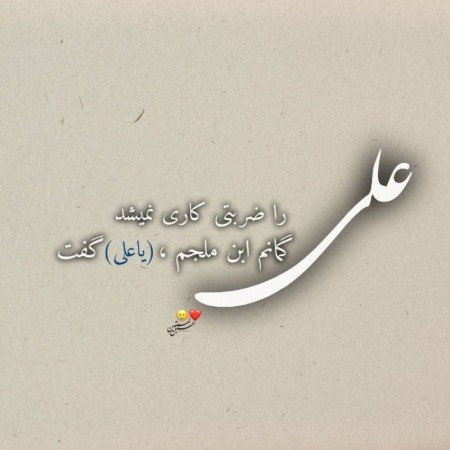 علی
را ضربتی کاری نمیشد
گمانم ابن ملجم ، (یاعلی) گفت